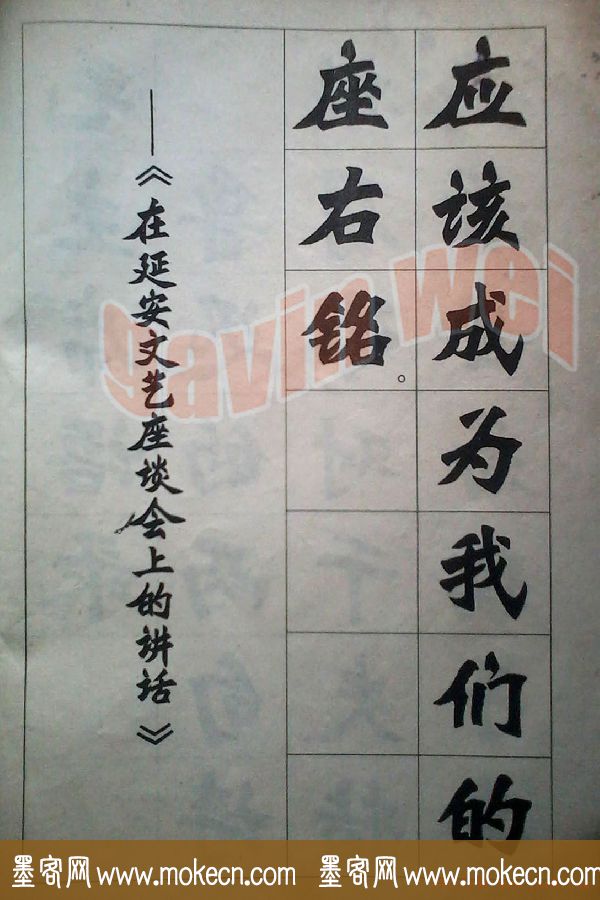 应该成为我们的
座右铭。
——《在延安文艺座谈会上的讲话》
yavin wei
墨客网 www.mokecn.com 墨客网 www.mokecn.com